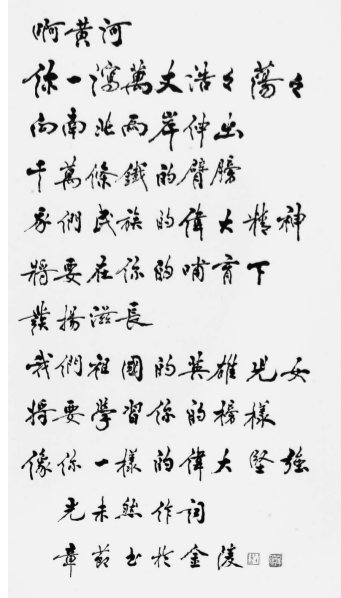 啊黄河
你一瀉萬丈浩々蕩々
向南北兩岸伸出
千萬條鐵的臂膀
我們民族的偉大精神
將要在你的哺育下
發揚滋長
我們祖國的英雄兒女
將要學習你的榜樣
像你一樣的偉大堅強
光未然作詞
章書於金陵